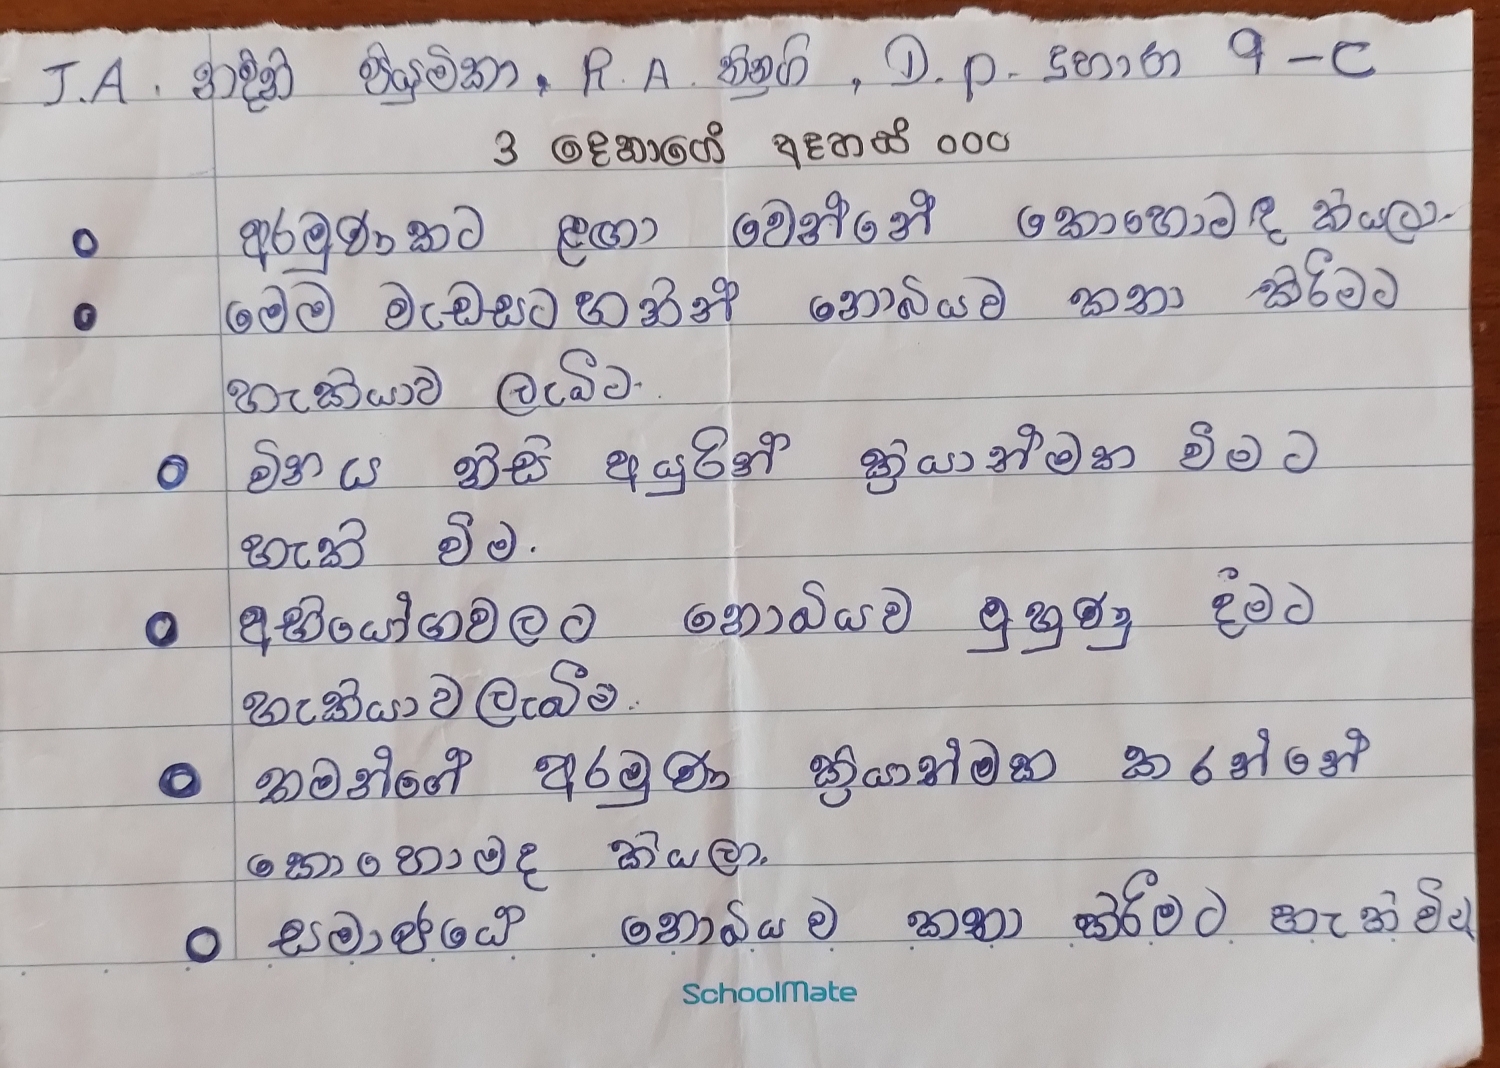 J.A. නදිනි පියුමිකා, R.A. තිනුගි, D.P. දුහාරා 9-C
3 දෙනාගේ අදහස් ୦୦୦
අරමුණකට ළඟා වෙන්නේ කොහොමද කියලා.
මෙම වැඩසටහනින් නොබියව කතා කිරීමට
හැකියාව ලැබීම.
විනය නිසි අයුරින් ක්‍රියාත්මක වීමට
හැකි වීම.
අභියෝගවලට නොබියව මුහුණු දීමට
හැකියාව ලැබීම.
තමන්ගේ අරමුණ ක්‍රියාත්මක කරන්නේ
කොහොමද කියලා.
සමාජයේ නොබියව කතා කිරීමට හැකි වීම
SchoolMate